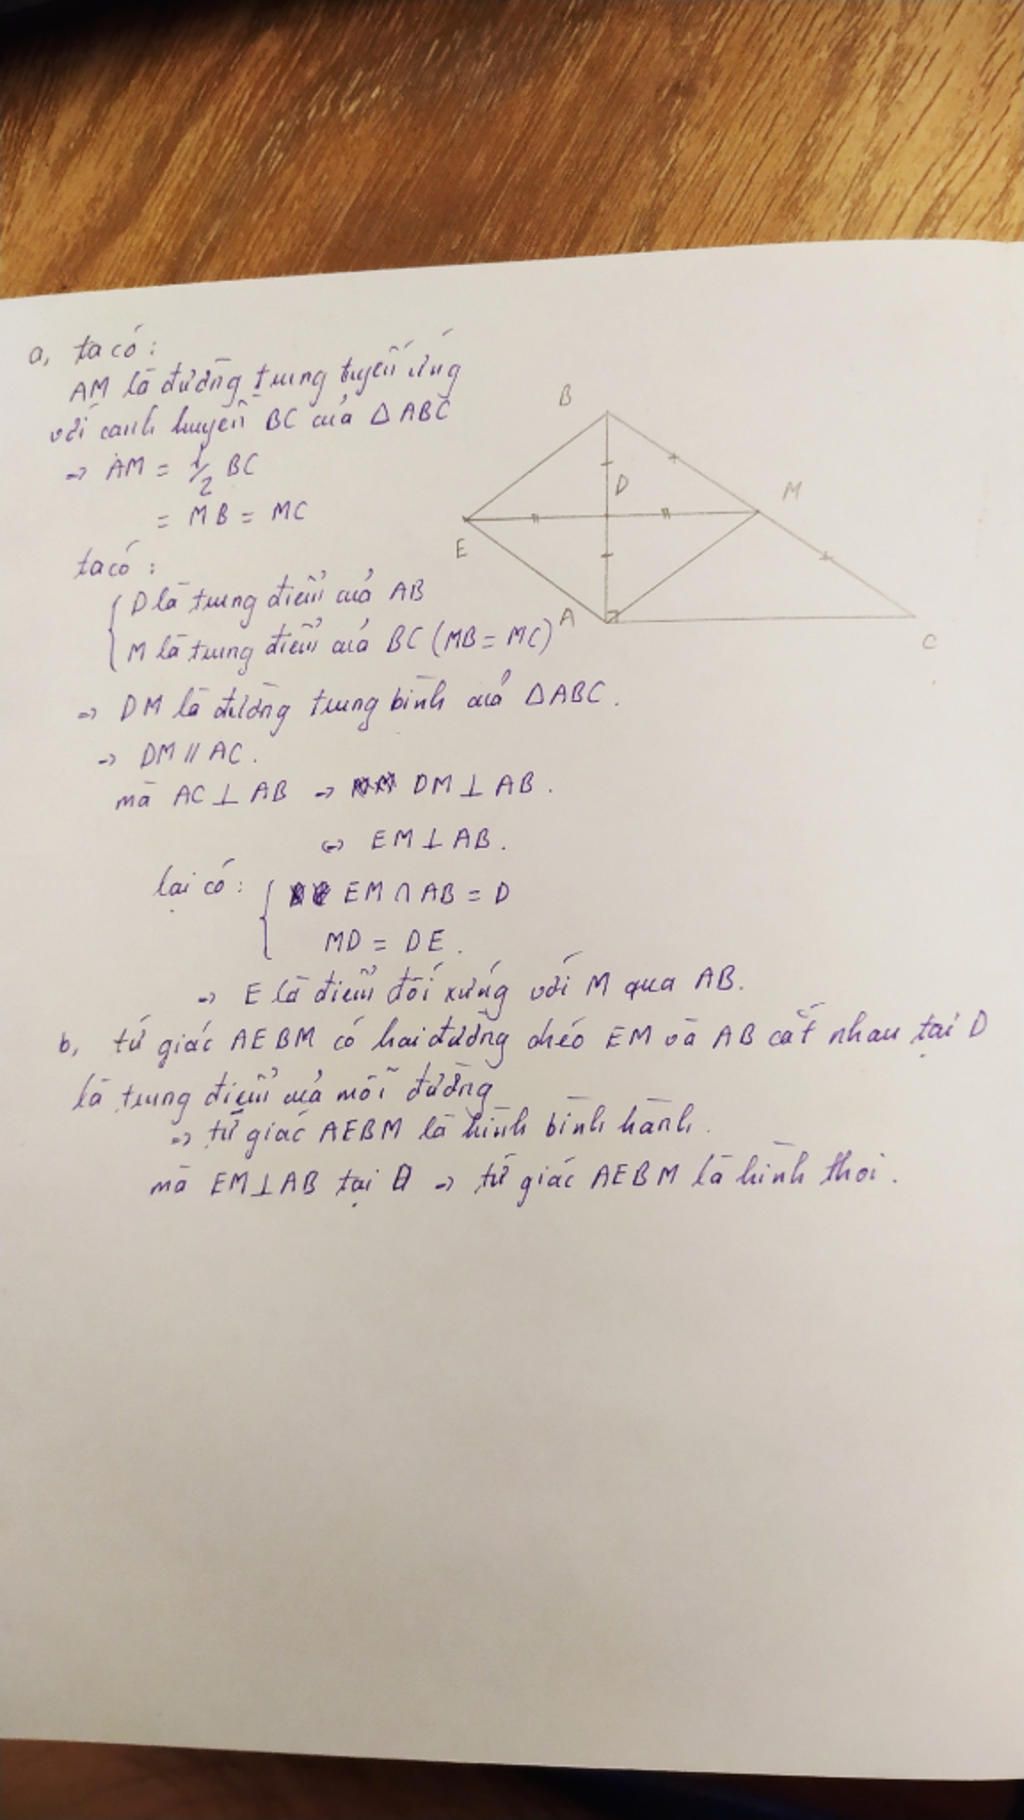 a, ta có:
AM là đường trung tuyến ứng
với cạnh huyền BC của △ ABC
→ AM = 1/2 BC
= MB = MC
ta có:
D là trung điểm của AB
M là trung điểm của BC (MB = MC)
→ DM là đường trung bình của △ABC.
→ DM // AC.
mà AC ⊥ AB → DM ⊥ AB.
⇔ EM ⊥ AB.
lại có: { EM ∩ AB = D
MD = DE.
→ E là điểm đối xứng với M qua AB.
b, tứ giác AEBM có hai đường chéo EM và AB cắt nhau tại D
là trung điểm của mỗi đường
→ tứ giác AEBM là hình bình hành.
mà EM ⊥ AB tại D → tứ giác AEBM là hình thoi.
B
D
M
E
A
C